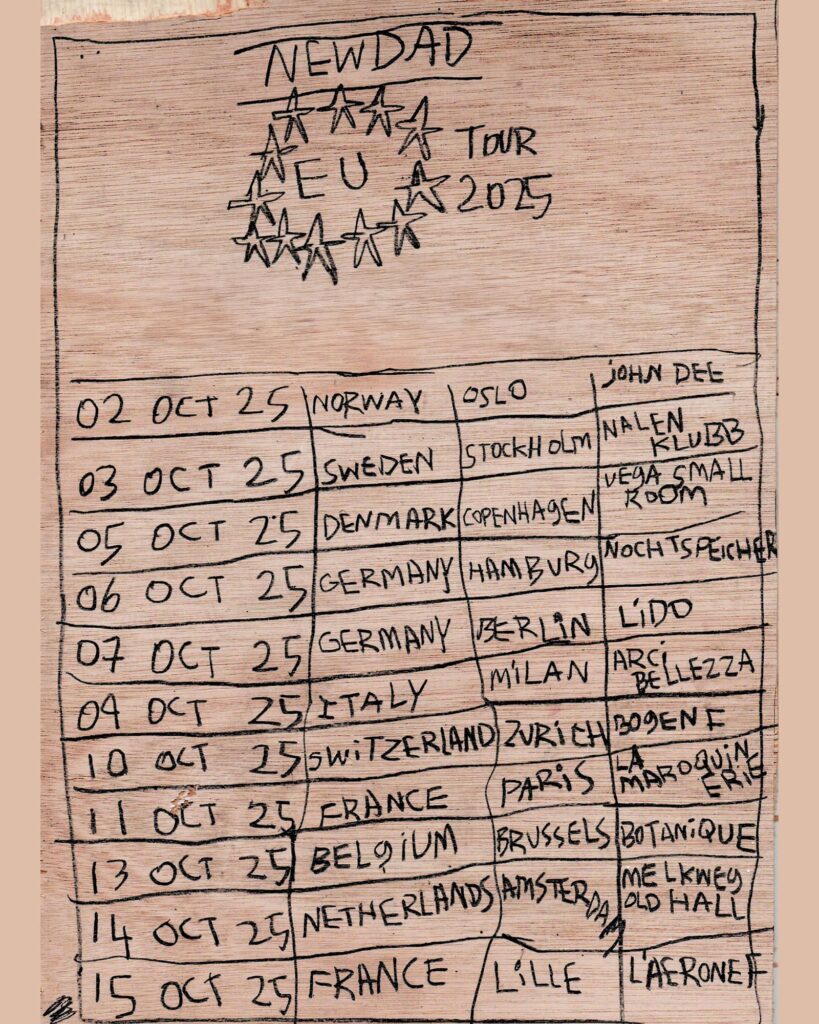 NEWDAD
EU TOUR
2025
02 OCT 25 NORWAY OSLO JOHN DEE
03 OCT 25 SWEDEN STOCKHOLM NALEN KLUBB
05 OCT 25 DENMARK COPENHAGEN VEGA SMALL ROOM
06 OCT 25 GERMANY HAMBURG NOCHTSPEICHER
07 OCT 25 GERMANY BERLIN LIDO
09 OCT 25 ITALY MILAN ARCI BELLEZZA
10 OCT 25 SWITZERLAND ZURICH BOGEN F
11 OCT 25 FRANCE PARIS LA MAROQUINERIE
13 OCT 25 BELGIUM BRUSSELS BOTANIQUE
14 OCT 25 NETHERLANDS AMSTERDAM MELKWEG OLD HALL
15 OCT 25 FRANCE LILLE L'AERONEF